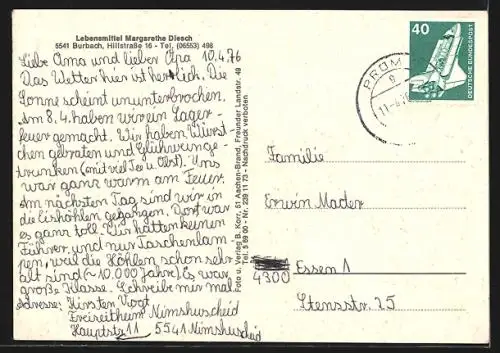 Lebensmittel Margarethe Diesch
5541 Burbach, Hillstraße 16 - Tel. (06553) 498
Liebe Oma und lieber Opa 10.4.76
Das Wetter hier ist herrlich. Die
Sonne scheint ununterbrochen.
Am 8.4. haben wir ein Lager-
feuer gemacht. Wir haben Würst-
chen gebraten und Glühwein ge-
trunken (mit viel Tee u. Obst). Uns
war ganz warm am Feuer.
Am nächsten Tag sind wir in
die Eishöhlen gegangen. Dort war
es ganz toll. Wir hatten keinen
Führer und nur Taschenlam-
pen, weil die Höhlen schon sehr
alt sind (~10.000 Jahre). Es war
große Klasse. Schreibe mir mal.
Adresse: Kirsten Vogt
Freizeitheim Nimshuscheid
Hauptstr. 11 5541 Nimshuscheid
Foto u. Verlag B. Korr, 51 Aachen-Brand, Freunder Landstr. 49
Tel. 5 69 00 - Nr. 229 11 73 - Nachdruck verboten
40
DEUTSCHE BUNDESPOST
PRÜM
Familie
Erwin Mader
4300 Essen 1
Stensstr. 25